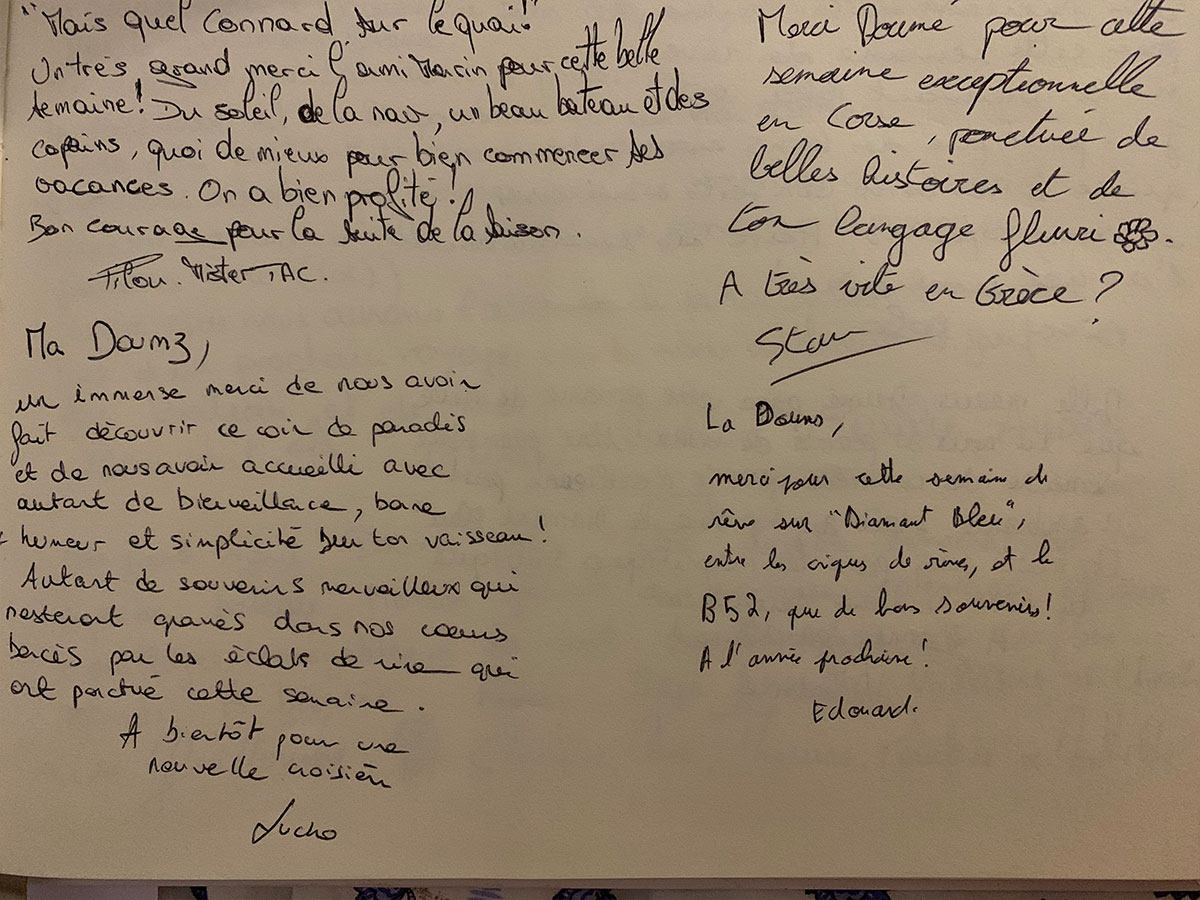 "Mais quel Connard sur le quai!"
Un très grand merci l'ami Marin pour cette belle
semaine! Du soleil, de la nav, un beau bateau et des
copains, quoi de mieux pour bien commencer ses
vacances. On a bien profité!
Bon courage pour la suite de la saison.
Filou. Mister TAC.
Ma Doumz,
un immense merci de nous avoir
fait découvrir ce coin de paradis
et de nous avoir accueilli avec
autant de bienveillance, bonne
humeur et simplicité sur ton vaisseau!
Autant de souvenirs merveilleux qui
resteront gravés dans nos cœurs
bercés par les éclats de rire qui
ont ponctué cette semaine.
A bientôt pour une
nouvelle croisière
Lucho
Merci Doumé pour cette
semaine exceptionnelle
en Corse, ponctuée de
belles histoires et de
ton langage fleuri.
A très vite en Grèce?
La Doums,
merci pour cette semaine de
rêve sur "Diamant Bleu",
entre les criques de rêves, et le
B52, que de bons souvenirs!
A l'année prochaine!
Edouard.